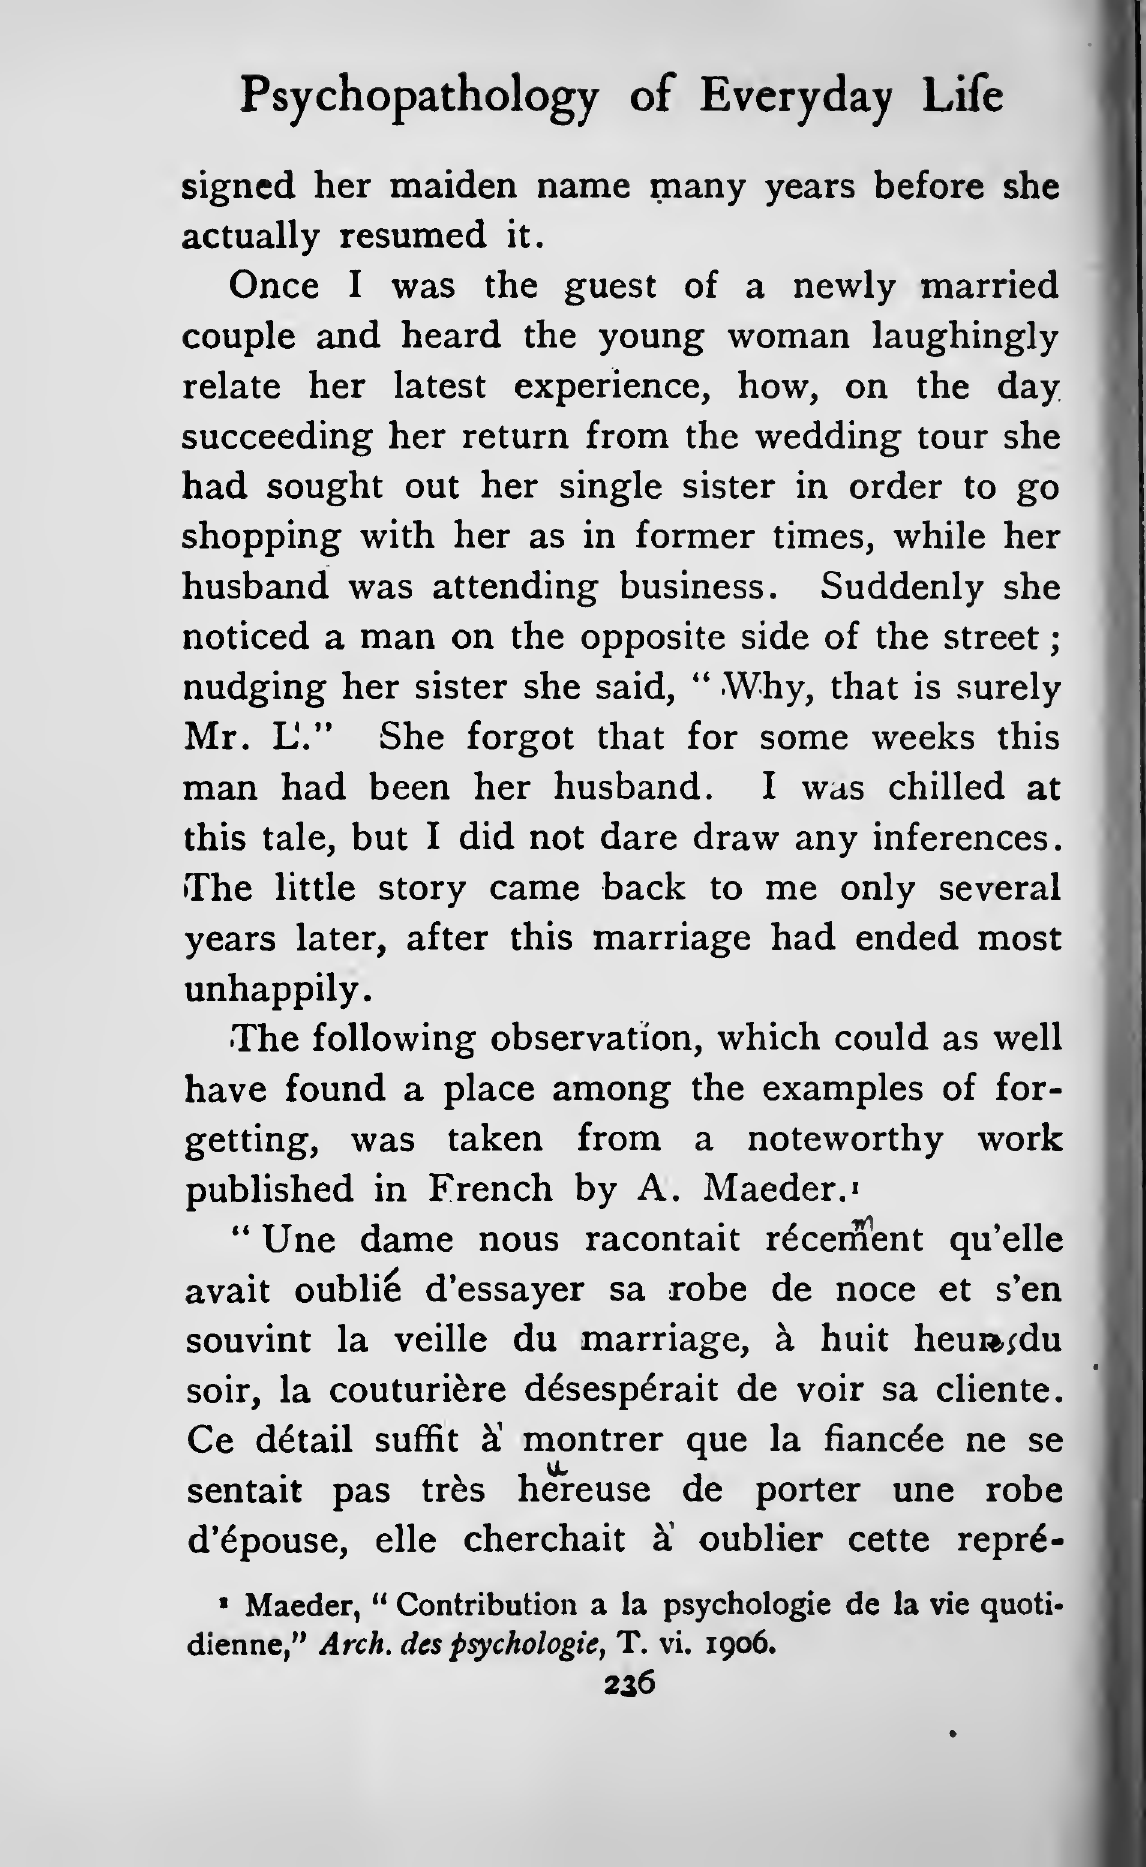 Psychopathology of Everyday Life
signed her maiden name many years before she
actually resumed it.
Once I was the guest of a newly married
couple and heard the young woman laughingly
relate her latest experience, how, on the day
succeeding her return from the wedding tour she
had sought out her single sister in order to go
shopping with her as in former times, while her
husband was attending business. Suddenly she
noticed a man on the opposite side of the street ;
nudging her sister she said, “ Why, that is surely
Mr. L.” She forgot that for some weeks this
man had been her husband. I was chilled at
this tale, but I did not dare draw any inferences.
The little story came back to me only several
years later, after this marriage had ended most
unhappily.
The following observation, which could as well
have found a place among the examples of for-
getting, was taken from a noteworthy work
published in French by A. Maeder.¹
“ Une dame nous racontait récemment qu’elle
avait oublié d’essayer sa robe de noce et s’en
souvint la veille du marriage, à huit heures du
soir, la couturière désespérait de voir sa cliente.
Ce détail suffit à montrer que la fiancée ne se
sentait pas très heureuse de porter une robe
d’épouse, elle cherchait à oublier cette repré-
¹ Maeder, “ Contribution a la psychologie de la vie quoti-
dienne,” Arch. des psychologie, T. vi. 1906.
236